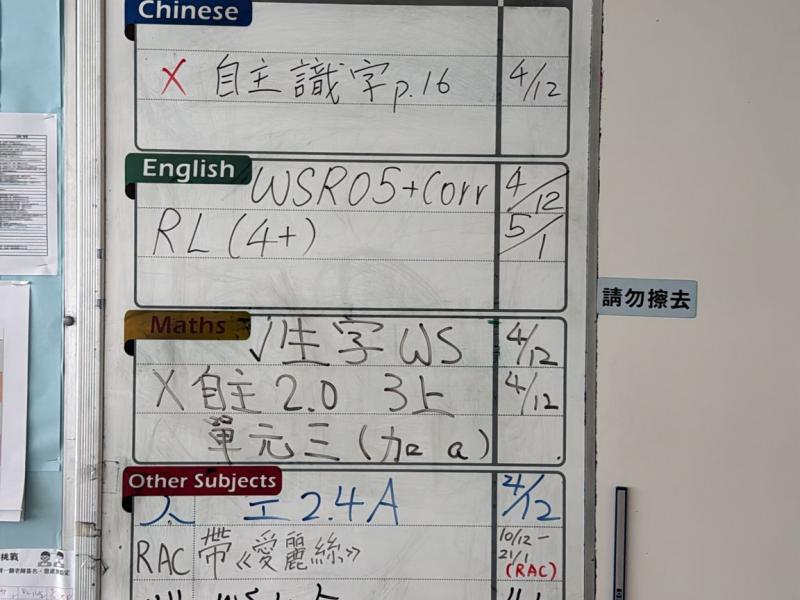 Chinese
X 自主識字 p.16 4/12
English
WSR05+Corr 4/12
RL (4+) 5/1
請勿擦去
Maths
√生字WS 4/12
X 自主 2.0 3上 4/12
單元三 (加 a)
Other Subjects
人 工 2.4A 4/12
RAC 帶《愛麗絲》 10/12 - 21/1 (RAC)
挑戰